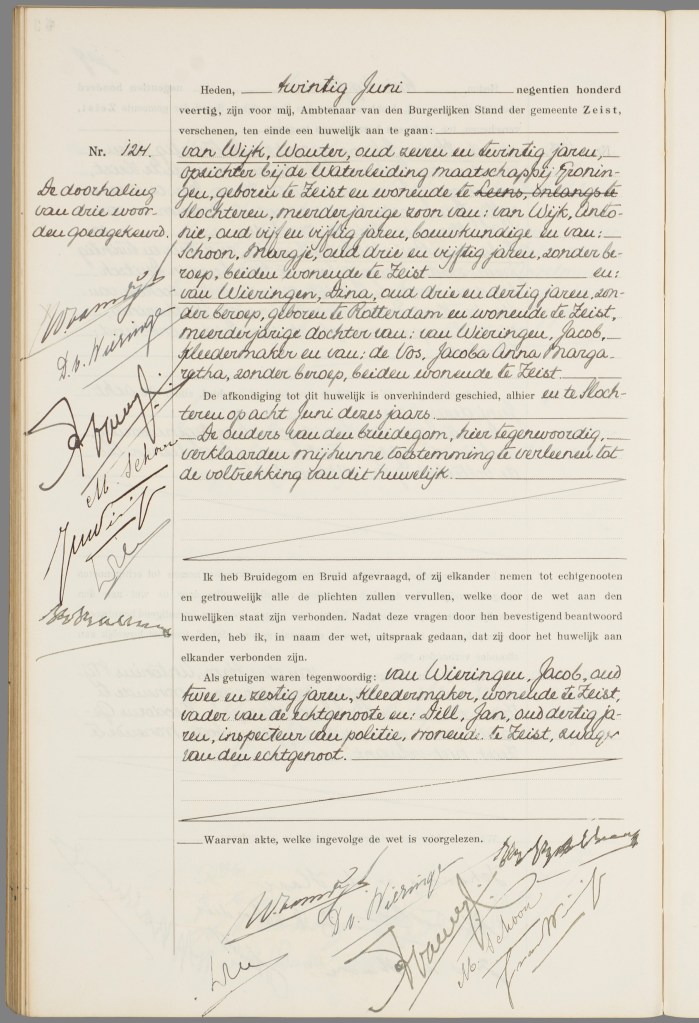 Heden, twintig Juni negentien honderd
veertig, zijn voor mij, Ambtenaar van den Burgerlijken Stand der gemeente Zeist,
verschenen, ten einde een huwelijk aan te gaan:
Nr. 124.
van Wijk, Wouter, oud zeven en twintig jaren,
opzichter bij de Waterleiding maatschappij Gronin-
gen, geboren te Zeist en wonende te Leens, onlangs te
Slochteren, meerderjarige zoon van: van Wijk, Anto-
nie, oud vijf en vijftig jaren, bouwkundige en van:
Schoon, Margje, oud drie en vijftig jaren, zonder be-
roep, beiden wonende te Zeist en:
van Wieringen, Dina, oud drie en dertig jaren, zon-
der beroep, geboren te Rotterdam en wonende te Zeist,
meerderjarige dochter van: van Wieringen, Jacob,
kleedermaker en van: de Vos, Jacoba Anna Marga-
retha, zonder beroep, beiden wonende te Zeist
De afkondiging tot dit huwelijk is onverhinderd geschied, alhier en te Sloch-
teren op acht Juni dezes jaars.
De ouders van den bruidegom, hier tegenwoordig,
verklaarden mij hunne toestemming te verleenen tot
de voltrekking van dit huwelijk.
De doorhaling
van drie woor-
den goedgekeurd.
D. v. Wieringe
M. Schoon
Ik heb Bruidegom en Bruid afgevraagd, of zij elkander nemen tot echtgenooten
en getrouwelijk alle de plichten zullen vervullen, welke door de wet aan den
huwelijken staat zijn verbonden. Nadat deze vragen door hen bevestigend beantwoord
werden, heb ik, in naam der wet, uitspraak gedaan, dat zij door het huwelijk aan
elkander verbonden zijn.
Als getuigen waren tegenwoordig: van Wieringen, Jacob, oud
twee en zestig jaren, kleedermaker, wonende te Zeist,
vader van de echtgenoote en: Dill, Jan, oud dertig ja-
ren, inspecteur van politie, wonende te Zeist, zwager
van den echtgenoot.
Waarvan akte, welke ingevolge de wet is voorgelezen.
D. v. Wieringe
M. Schoon